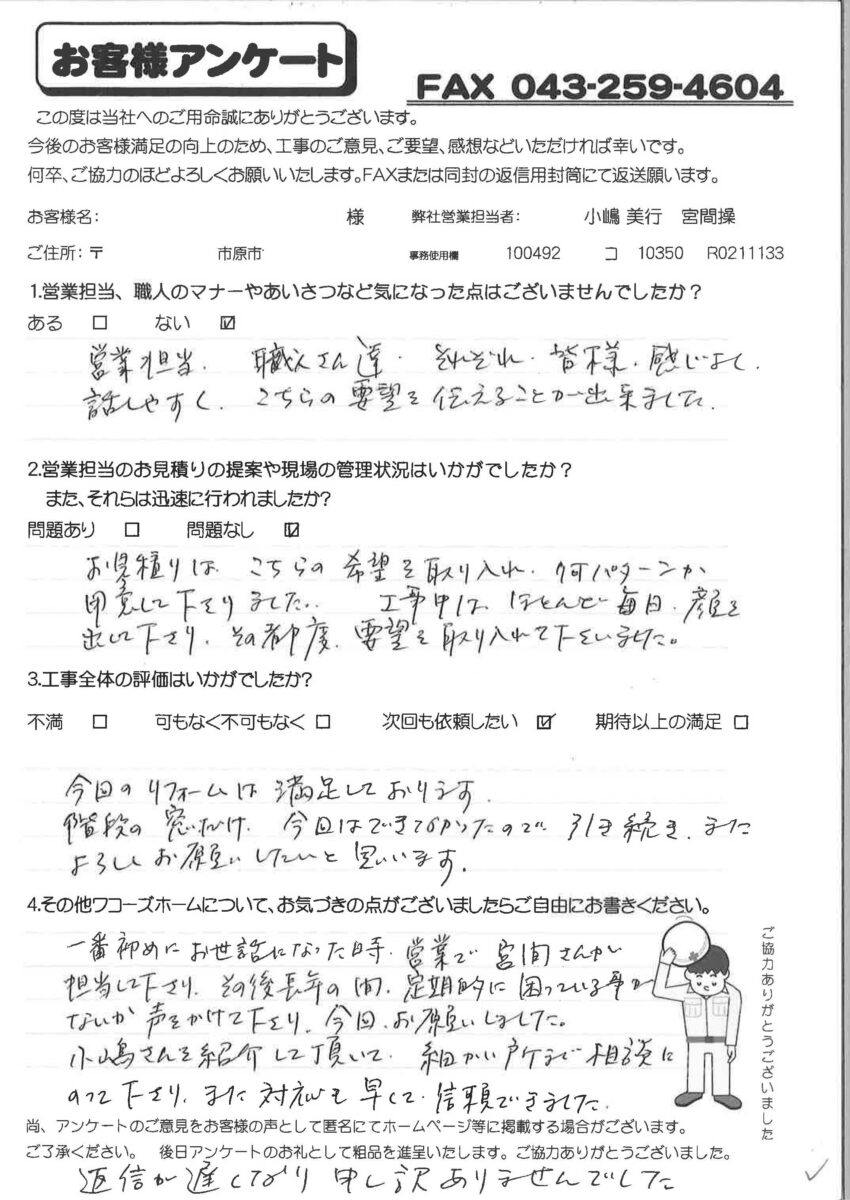 お客様アンケート
FAX 043-259-4604
この度は当社へのご用命誠にありがとうございます。
今後のお客様満足の向上のため、工事のご意見、ご要望、感想などいただければ幸いです。
何卒、ご協力のほどよろしくお願いいたします。FAXまたは同封の返信用封筒にて返送願います。
お客様名: 様 弊社営業担当者: 小嶋 美行 宮間操
ご住所:〒 市原市 事務使用欄 100492 コ 10350 R0211133
1.営業担当、職人のマナーやあいさつなど気になった点はございませんでしたか?
ある □ ない ☑
営業担当、職人さん達、それぞれ、皆様、感じよく、
話しやすく、こちらの要望を伝えることが出来ました。
2.営業担当のお見積りの提案や現場の管理状況はいかがでしたか?
また、それらは迅速に行われましたか?
問題あり □ 問題なし ☑
お見積りは、こちらの希望を取り入れ、何パターンか
用意して下さりました。工事中は、ほとんど毎日、顔を
出して下さり、その都度、要望を取り入れて下さいました。
3.工事全体の評価はいかがでしたか?
不満 □ 可もなく不可もなく □ 次回も依頼したい ☑ 期待以上の満足 □
今回のリフォームは満足しております。
階段の窓だけ、今回はできなかったので、引き続き、また
よろしくお願いしたいと思います。
4.その他ワコーズホームについて、お気づきの点がございましたらご自由にお書きください。
一番初めにお世話になった時、営業で宮間さんが
担当して下さり、その後長年の間、定期的に困っている事が
ないか声をかけて下さり、今回、お願いしました。
小嶋さんを紹介して頂いて、細かい所まで相談に
のって下さり、また対応も早くて、信頼できました。
ご協力ありがとうございました
尚、アンケートのご意見をお客様の声として匿名にてホームページ等に掲載する場合がございます。
ご了承ください。 後日アンケートのお礼として粗品を進呈いたします。ご協力ありがとうございました。
返信が遅くなり申し訳ありませんでした